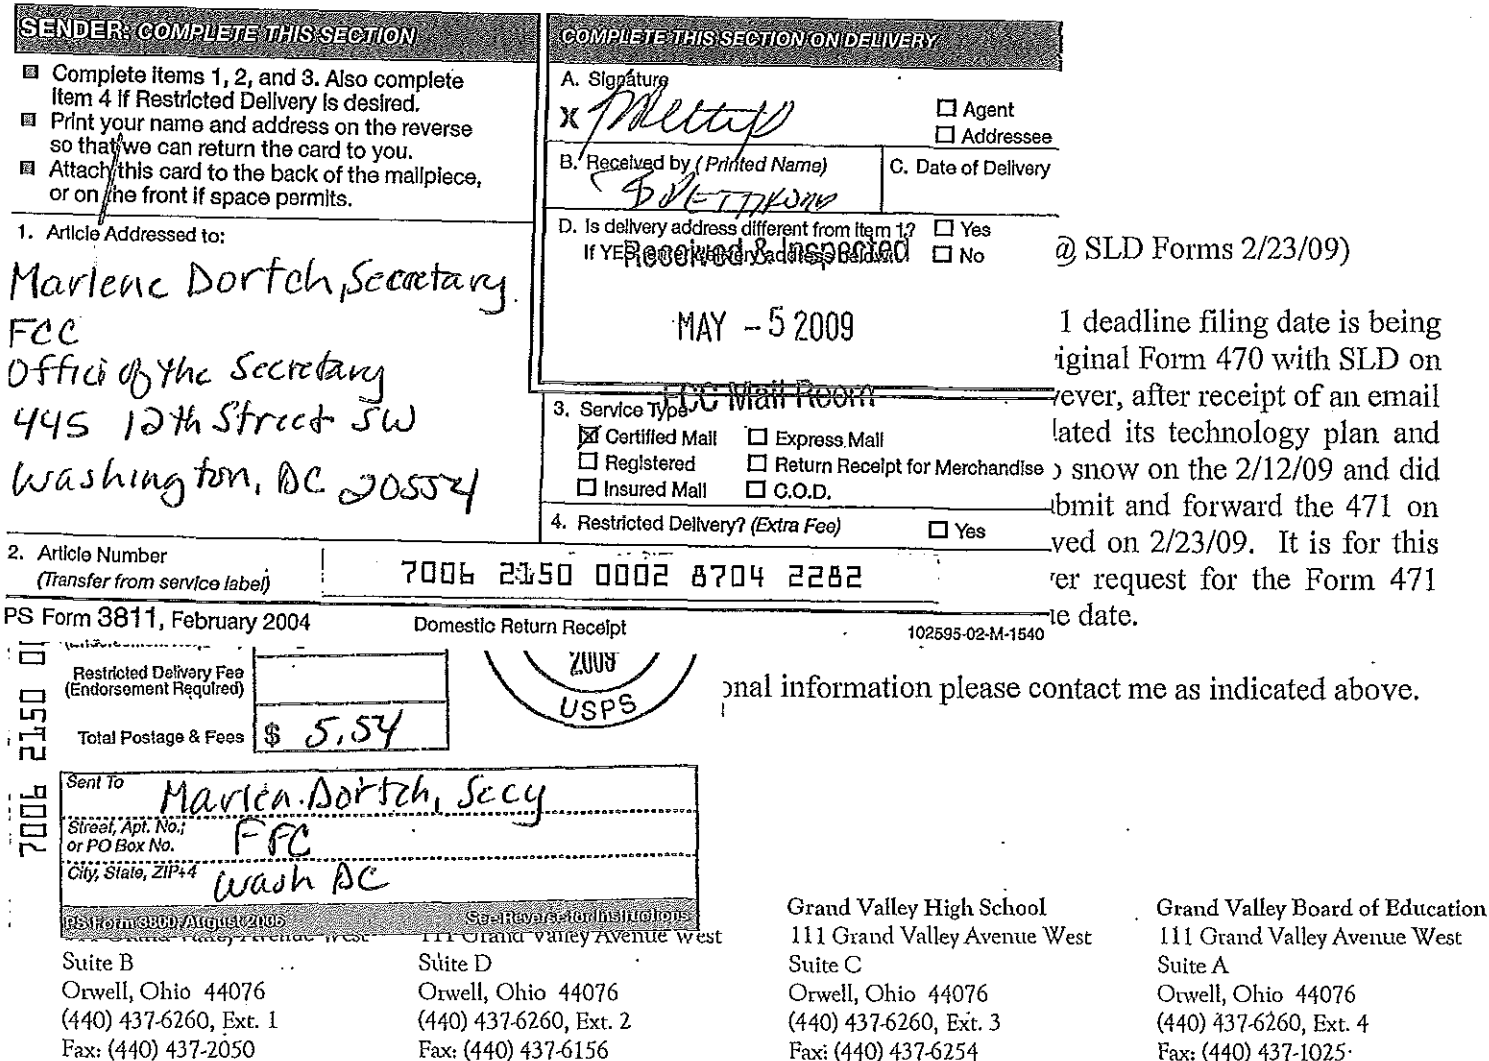 SENDER: COMPLETE THIS SECTION
Complete items 1, 2, and 3. Also complete
item 4 if Restricted Delivery is desired.
Print your name and address on the reverse
so that we can return the card to you.
Attach this card to the back of the mailpiece,
or on the front if space permits.
1. Article Addressed to:
Marlene Dortch, Secretary
FCC
Office of the Secretary
445 12th Street SW
Washington, DC 20554
2. Article Number
(Transfer from service label)
7006 2150 0002 8704 2282
PS Form 3811, February 2004
Domestic Return Receipt
102595-02-M-1540
COMPLETE THIS SECTION ON DELIVERY
A. Signature
X
Agent
Addressee
B. Received by (Printed Name)
C. Date of Delivery
D. Is delivery address different from item 1? Yes
If YES, enter delivery address below: No
Received & Inspected
MAY - 5 2009
FCC Mail Room
3. Service Type
Certified Mail Express Mail
Registered Return Receipt for Merchandise
Insured Mail C.O.D.
4. Restricted Delivery? (Extra Fee) Yes
@ SLD Forms 2/23/09)
1 deadline filing date is being
iginal Form 470 with SLD on
ever, after receipt of an email
lated its technology plan and
snow on the 2/12/09 and did
bmit and forward the 471 on
ved on 2/23/09. It is for this
er request for the Form 471
e date.
onal information please contact me as indicated above.
7006 2150
Restricted Delivery Fee
(Endorsement Required)
Total Postage & Fees $ 5.54
2009
USPS
Sent To
Marlen Dortch, Secy
Street, Apt. No.;
or PO Box No.
FFC
City, State, ZIP+4
Wash DC
PS Form 3800, August 2006 See Reverse for Instructions
111 Grand Valley Avenue West
Suite B
Orwell, Ohio 44076
(440) 437-6260, Ext. 1
Fax: (440) 437-2050
111 Grand Valley Avenue West
Suite D
Orwell, Ohio 44076
(440) 437-6260, Ext. 2
Fax: (440) 437-6156
Grand Valley High School
111 Grand Valley Avenue West
Suite C
Orwell, Ohio 44076
(440) 437-6260, Ext. 3
Fax: (440) 437-6254
Grand Valley Board of Education
111 Grand Valley Avenue West
Suite A
Orwell, Ohio 44076
(440) 437-6260, Ext. 4
Fax: (440) 437-1025